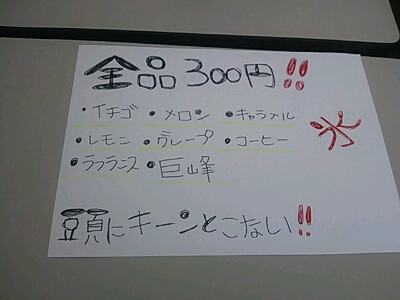 全品300円!!
・イチゴ ・メロン ・キャラメル
・レモン ・グレープ ・コーヒー
・ラフランス ・巨峰
氷
頭にキーンとこない!!